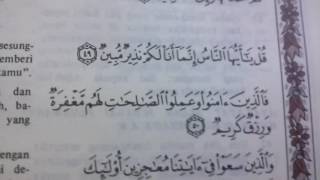 sesung-
emberi
amu".
قُلْ يَٰٓأَيُّهَا ٱلنَّاسُ إِنَّمَآ أَنَا۠ لَكُمْ نَذِيرٌ مُّبِينٌ ٤٩
dan
h, ba-
yang
فَٱلَّذِينَ ءَامَنُوا۟ وَعَمِلُوا۟ ٱلصَّٰلِحَٰتِ لَهُم مَّغْفِرَةٌ
وَرِزْقٌ كَرِيمٌ ٥٠
engan
i de-
وَٱلَّذِينَ سَعَوْا۟ فِىٓ ءَايَٰتِنَا مُعَٰجِزِينَ أُو۟لَٰٓئِكَ